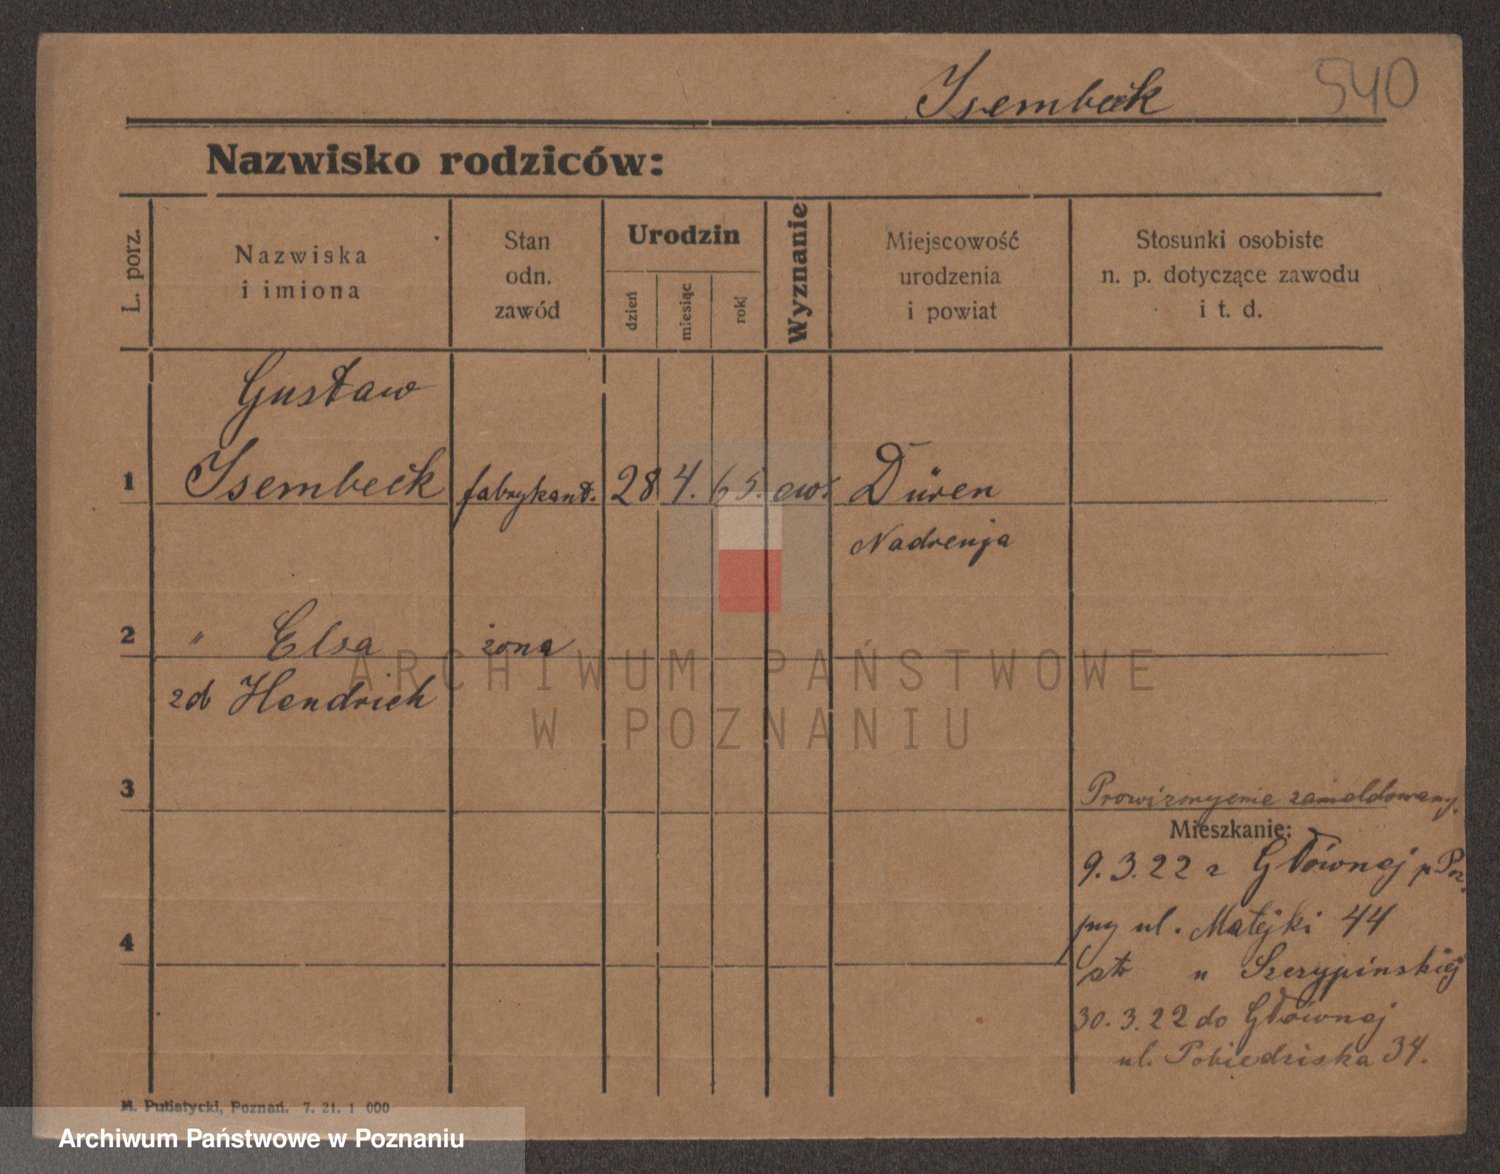 Isembeck 540
Nazwisko rodziców:
L. porz.
Nazwiska
i imiona
Stan
odn.
zawód
Urodzin
dzień
miesiąc
rok
Wyznanie
Miejscowość
urodzenia
i powiat
Stosunki osobiste
n. p. dotyczące zawodu
i t. d.
Gustaw
1 Isembeck fabrykant. 28 4. 65. ew. Düren
Nadrenja
2 " Elsa żona
zd Hendrich
3 Prowizorycznie zameldowany.
Mieszkanie:
9.3.22 z Głównej p Poz.
przy ul. Matejki 44
4
u Szczypińskiej
30.3.22 do Głównej
ul. Pobiedziska 34.
M. Putiatycki, Poznań. 7. 21. 1 000
ARCHIWUM PAŃSTWOWE
W POZNANIU
Archiwum Państwowe w Poznaniu